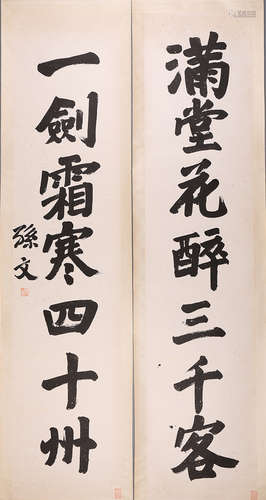 满堂花醉三千客
一劍霜寒四十州
孫文